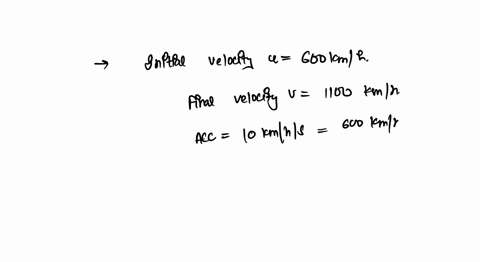 → Initial velocity u = 600 km/h.
Final velocity v = 1100 km/h
Acc = 10 km/h/s = 600 km/h